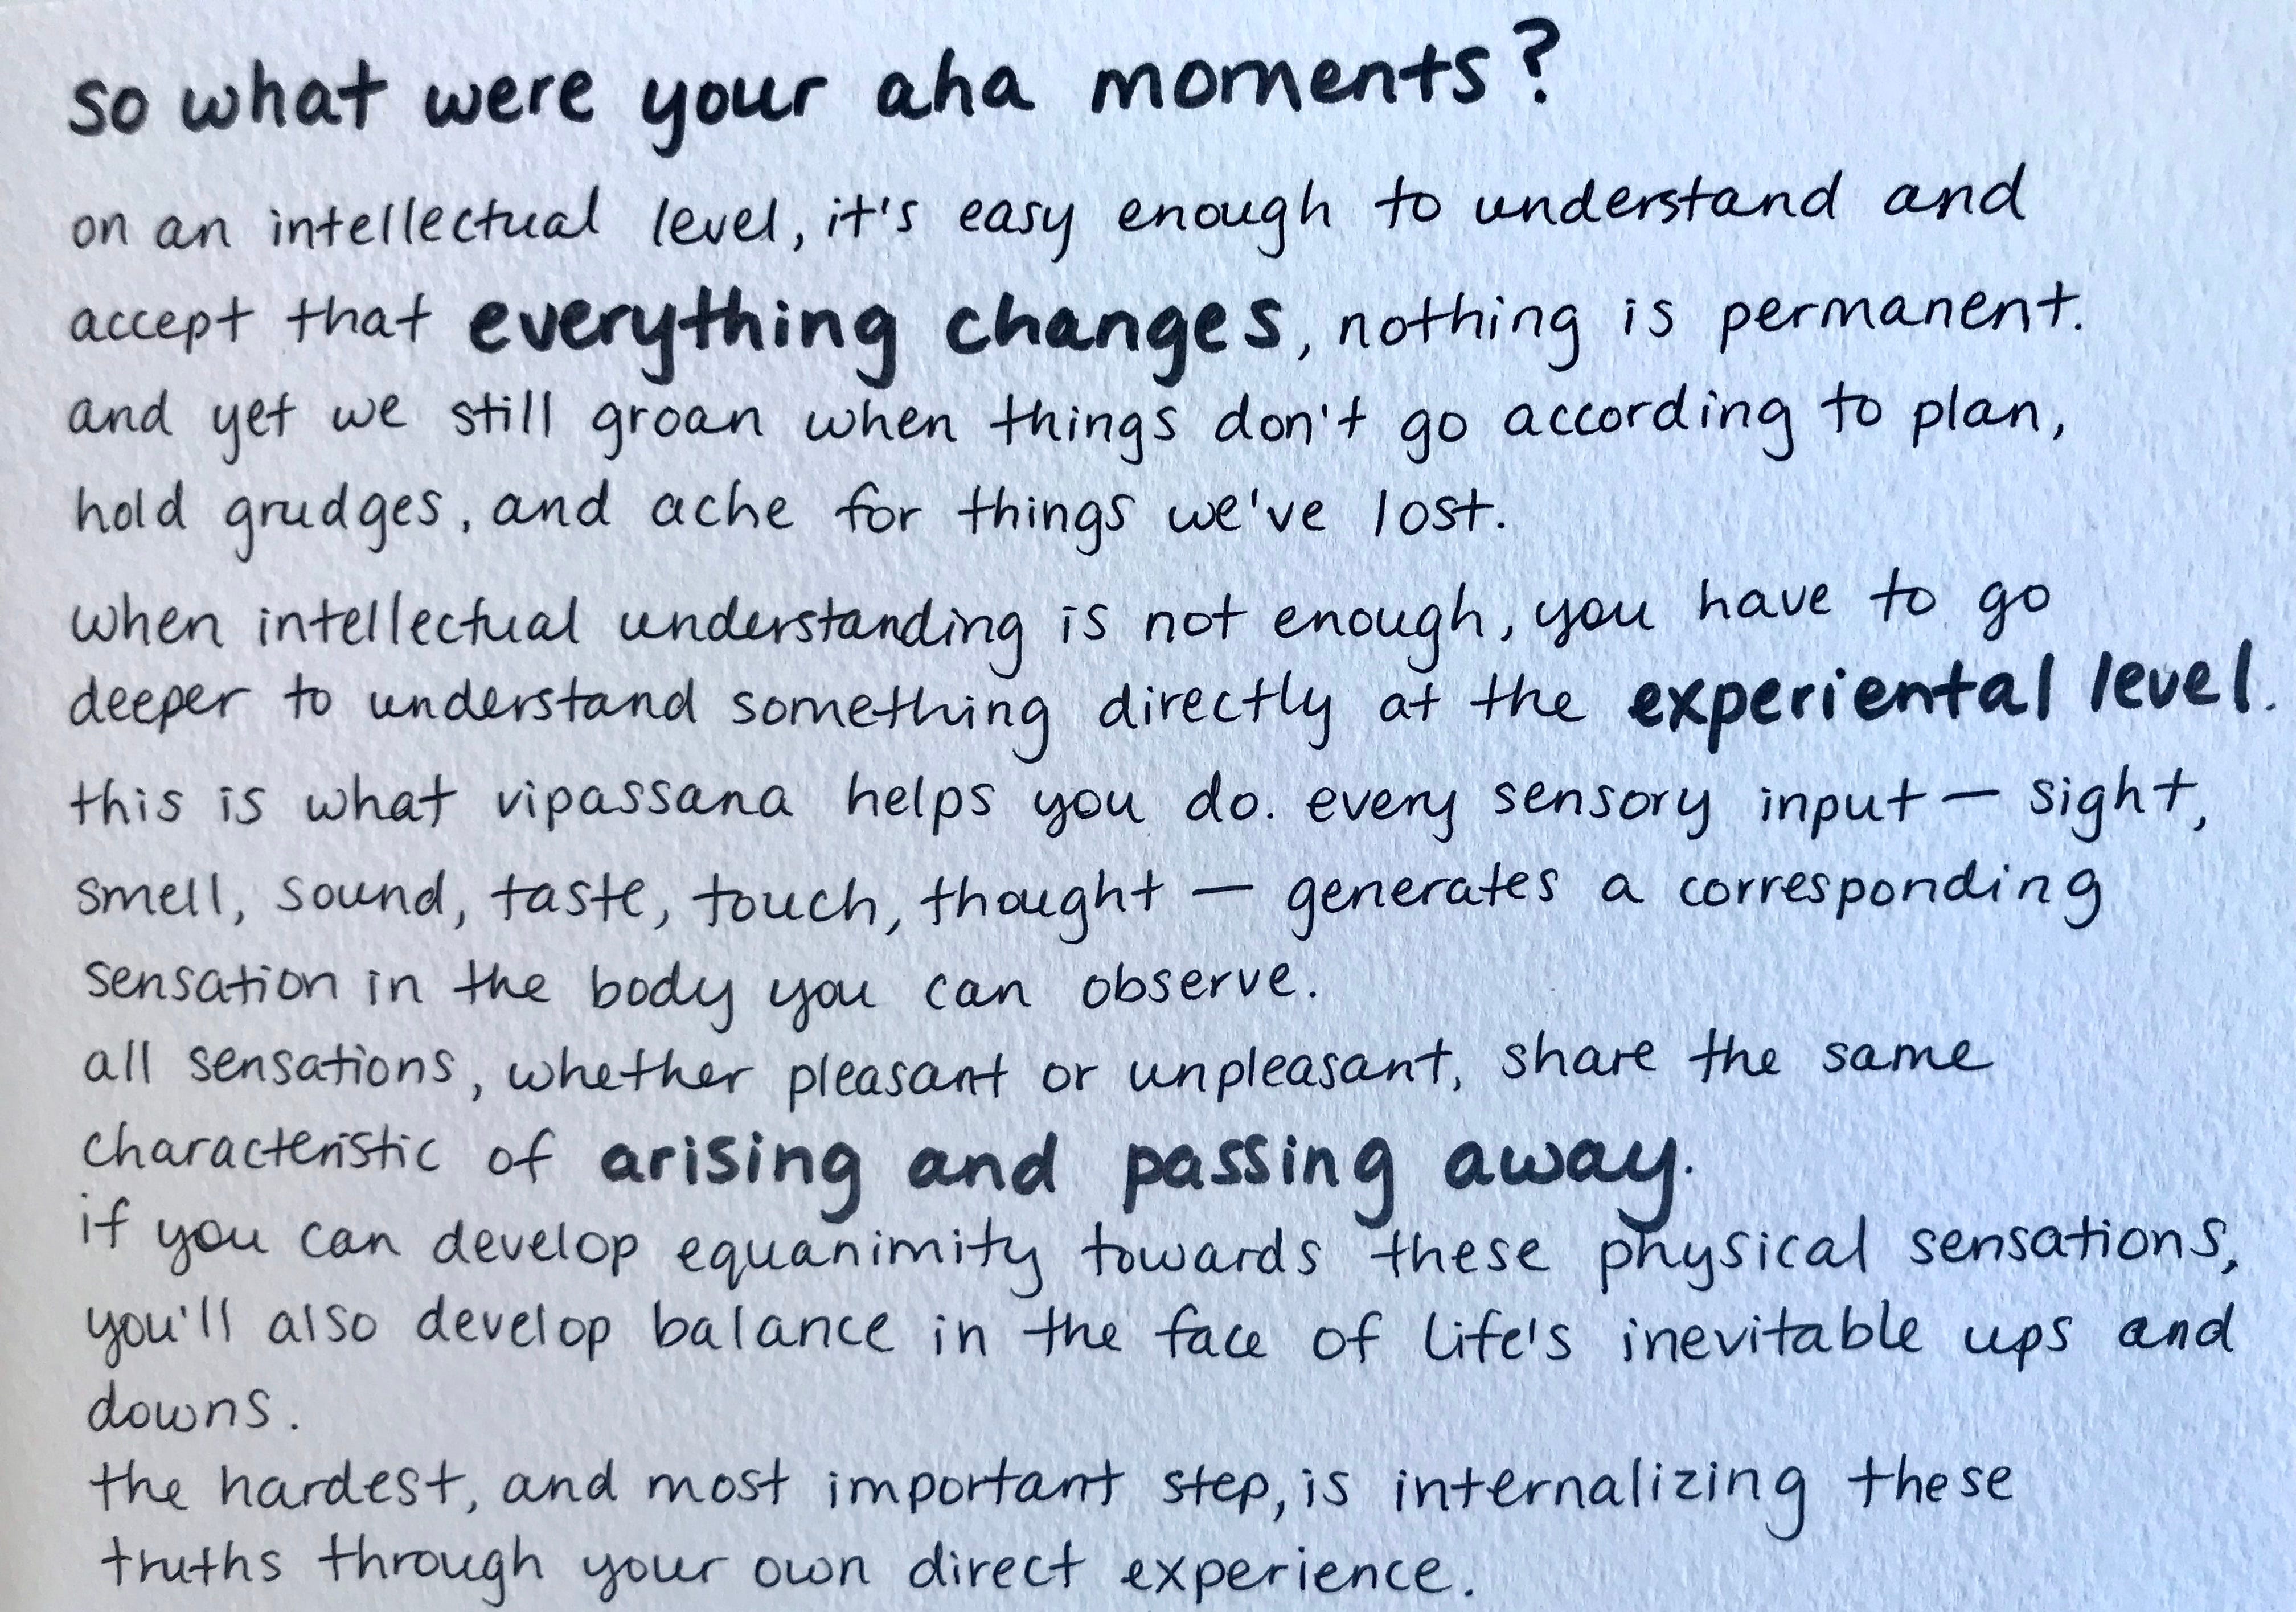 so what were your aha moments?
on an intellectual level, it's easy enough to understand and
accept that everything changes, nothing is permanent.
and yet we still groan when things don't go according to plan,
hold grudges, and ache for things we've lost.
when intellectual understanding is not enough, you have to go
deeper to understand something directly at the experiental level.
this is what vipassana helps you do. every sensory input — sight,
smell, sound, taste, touch, thought — generates a corresponding
sensation in the body you can observe.
all sensations, whether pleasant or unpleasant, share the same
characteristic of arising and passing away.
if you can develop equanimity towards these physical sensations,
you'll also develop balance in the face of life's inevitable ups and
downs.
the hardest, and most important step, is internalizing these
truths through your own direct experience.